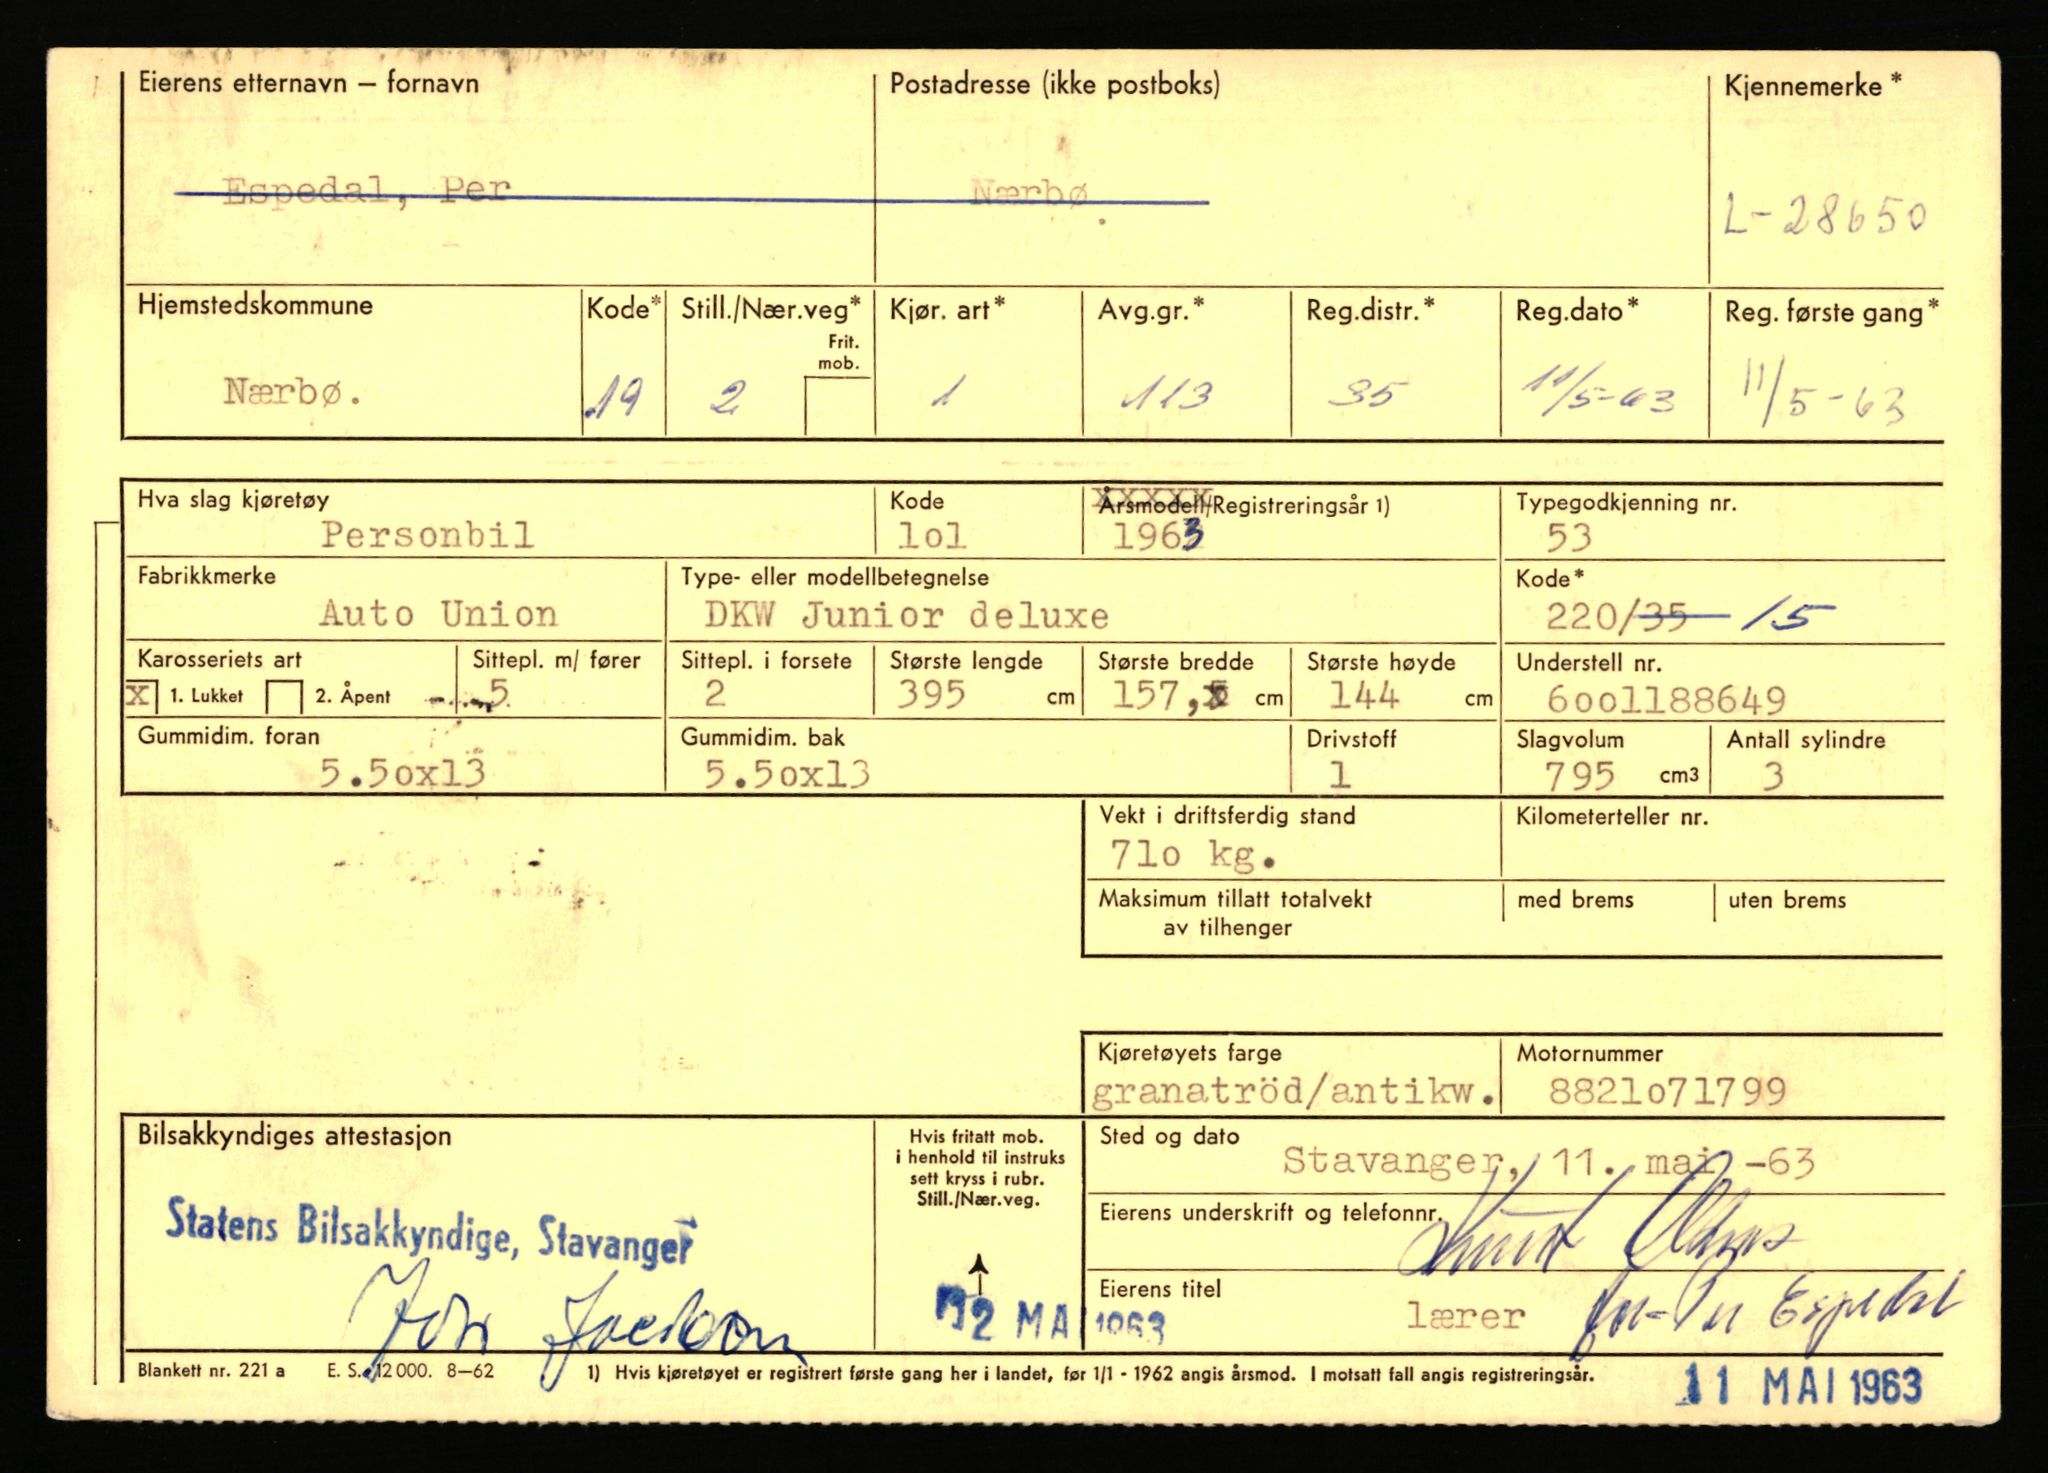 Eierens etternavn – fornavn Postadresse (ikke postboks) Kjennemerke*
Espedal, Per Nærbø. L-28650
Hjemstedskommune Kode* Still./Nær.veg* Kjør. art* Avg.gr.* Reg.distr.* Reg.dato* Reg. første gang*
Frit.
mob.
Nærbø. 19 2 1 113 35 11/5-63 11/5-63
Hva slag kjøretøy Kode Årsmodell/Registreringsår 1) Typegodkjenning nr.
Personbil 1o1 1963 53
Fabrikkmerke Type- eller modellbetegnelse Kode*
Auto Union DKW Junior deluxe 220/35 15
Karosseriets art Sittepl. m/ fører Sittepl. i forsete Største lengde Største bredde Største høyde Understell nr.
X 1. Lukket 2. Åpent 5 2 395 cm 157, cm 144 cm 6oo1188649
Gummidim. foran Gummidim. bak Drivstoff Slagvolum Antall sylindre
5.5ox13 5.5ox13 1 795 cm3 3
Vekt i driftsferdig stand Kilometerteller nr.
71o kg.
Maksimum tillatt totalvekt med brems uten brems
av tilhenger
Kjøretøyets farge Motornummer
granatröd/antikw. 8821o71799
Bilsakkyndiges attestasjon Hvis fritatt mob. Sted og dato
i henhold til instruks Stavanger, 11. mai -63
sett kryss i rubr.
Still./Nær.veg.
Eierens underskrift og telefonnr.
Statens Bilsakkyndige, Stavanger
Eierens titel
lærer Per Espedal
MAI 1963
Blankett nr. 221 a E. S. 12 000. 8–62 1) Hvis kjøretøyet er registrert første gang her i landet, før 1/1 - 1962 angis årsmod. I motsatt fall angis registreringsår. 11 MAI 1963